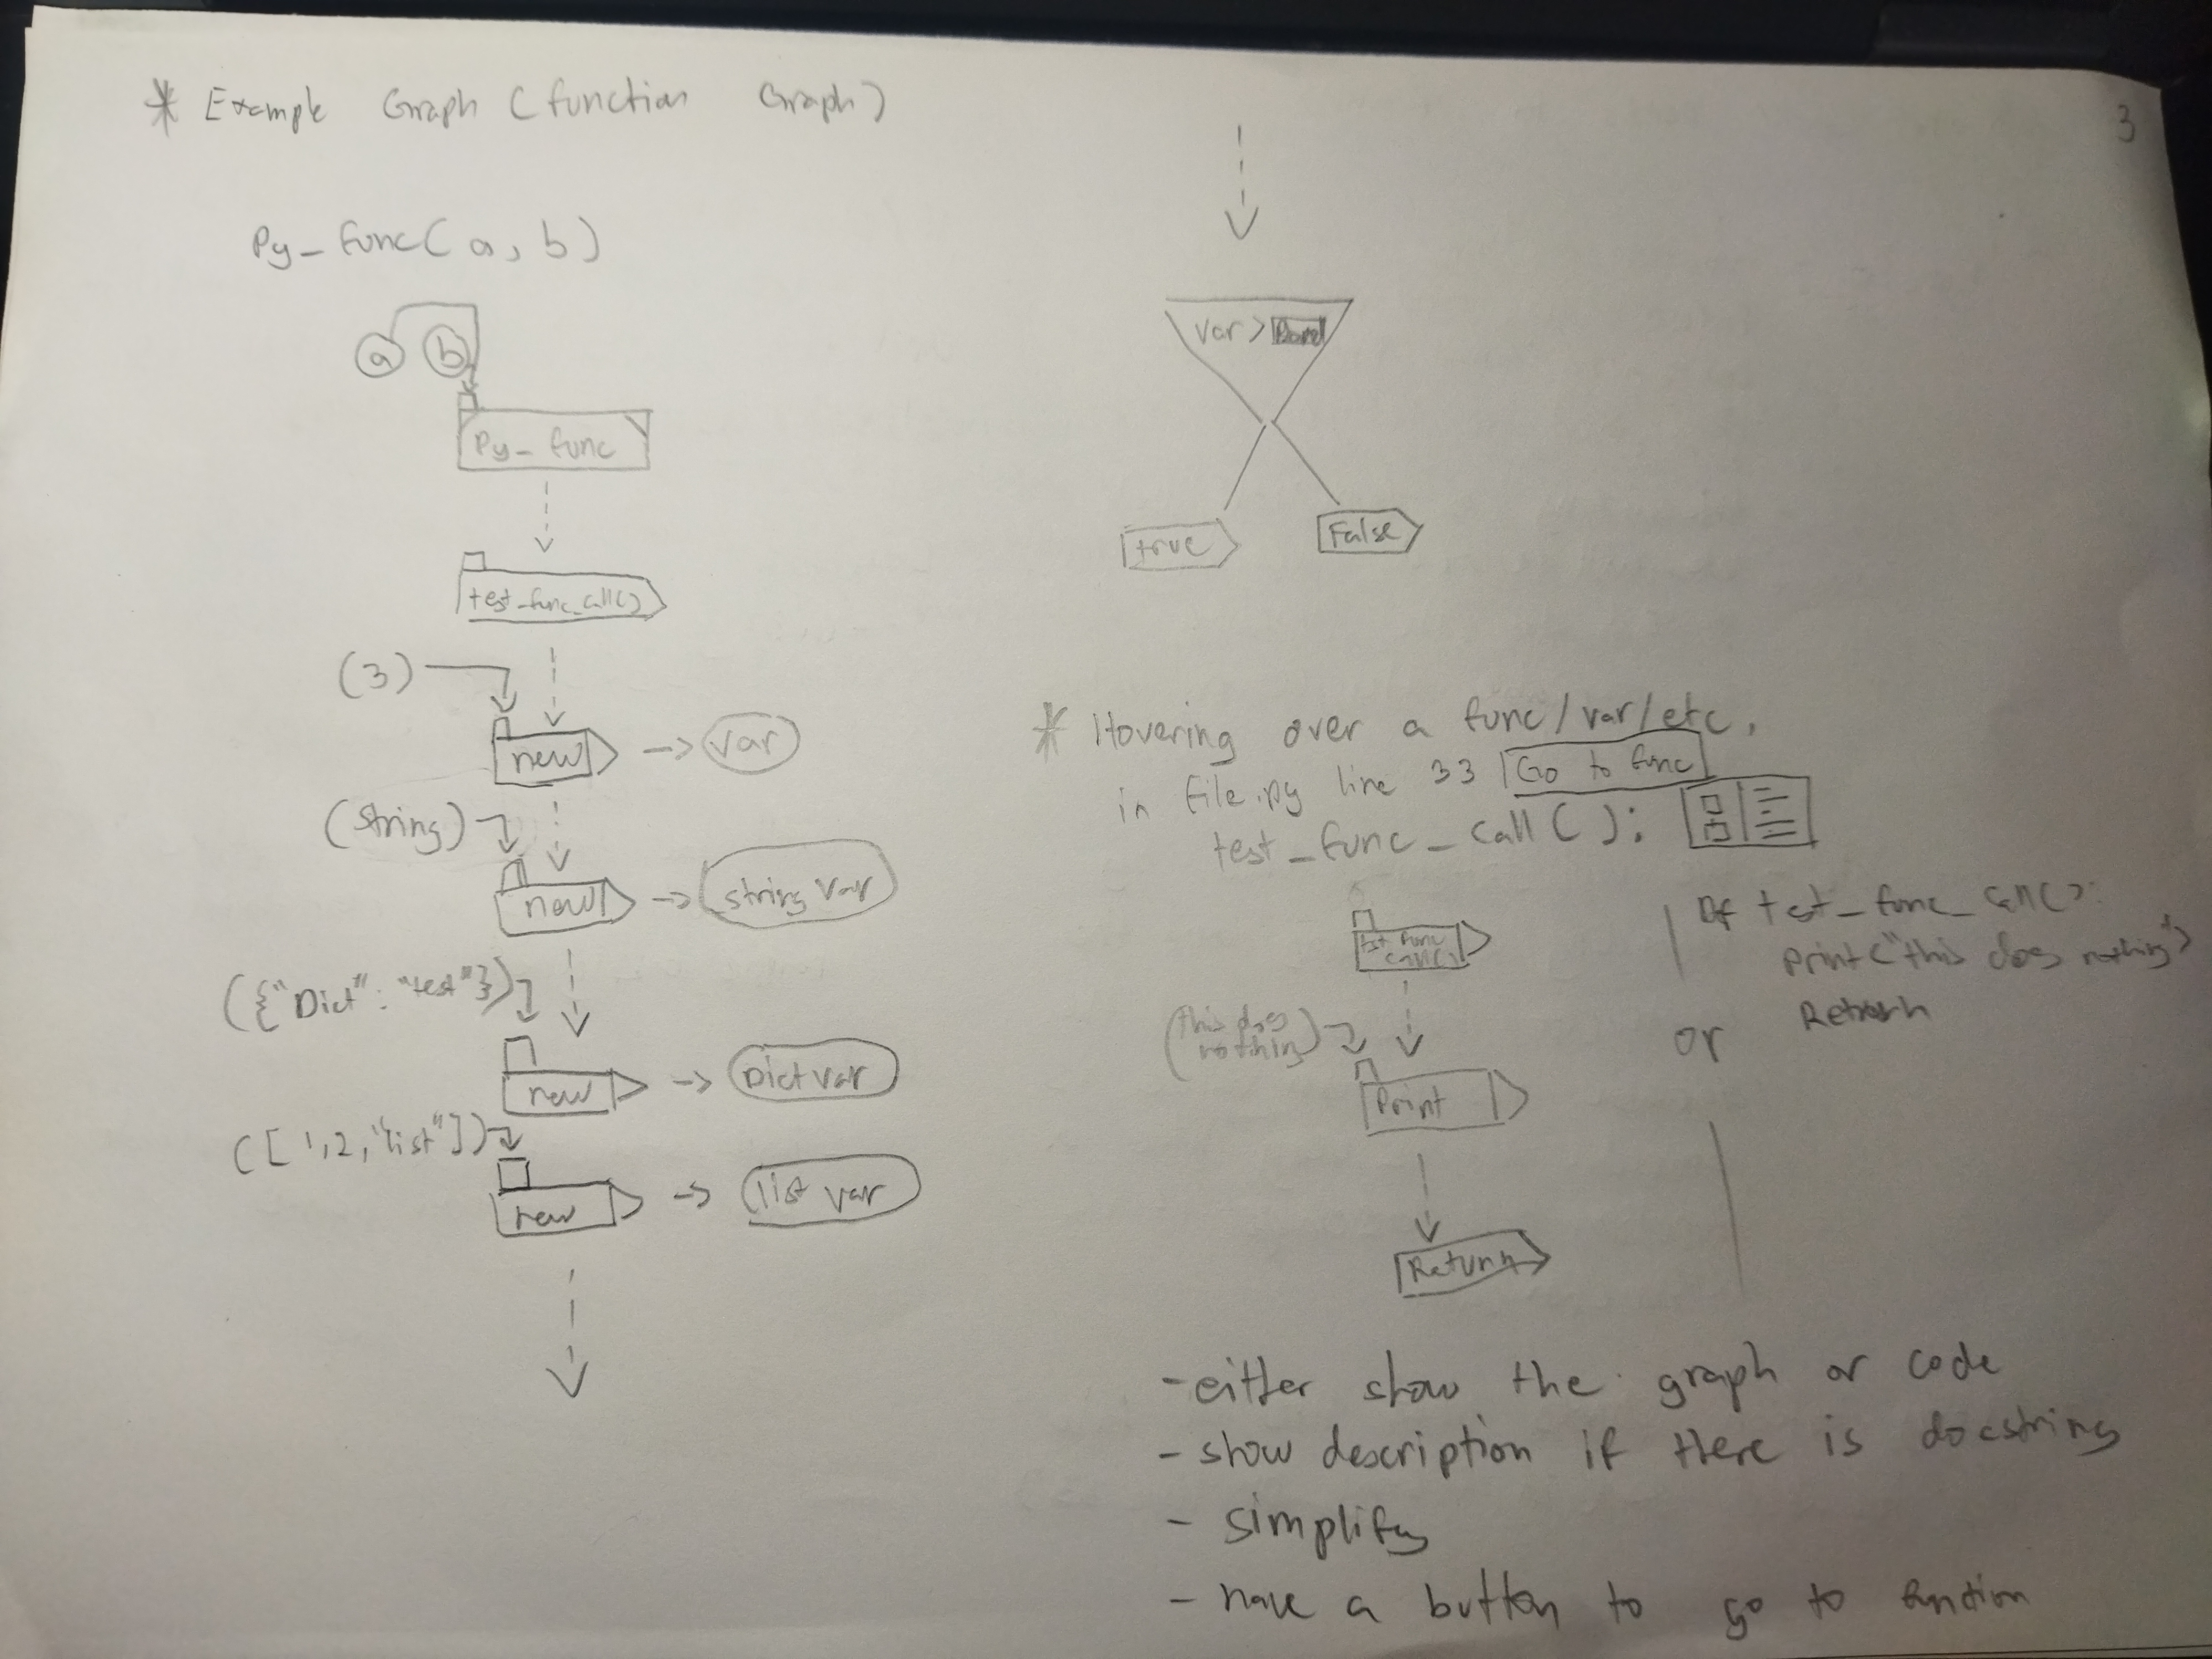 * Example Graph (function Graph)
3
Py_func(a, b)
a b
Py_func
test_func_call()
(3)
new -> var
(string)
new -> string var
({"Dict": "test"})
new -> Dict var
([1,2,"list"])
new -> list var
var >
true False
* Hovering over a func/var/etc.
in file.py line 33 Go to func
test_func_call():
test_func_call()
(this does nothing)
Print
Return
or
Def test_func_call():
print("this does nothing")
Return
- either show the graph or code
- show description if there is docstring
- simplify
- have a button to go to function